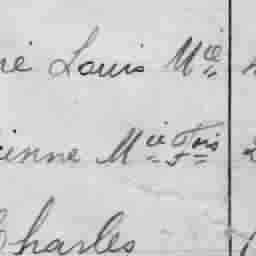 né Louis Mie
ienne Mie Fois
Charles